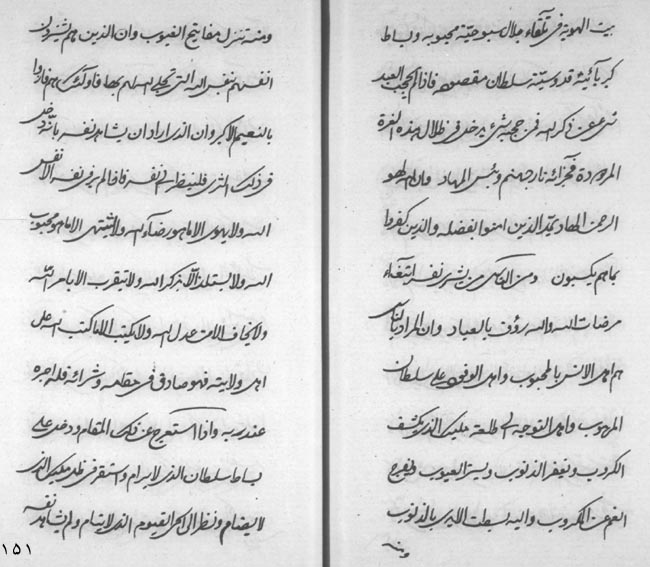 بيت الهوية فى تلقاء جلال سبوحيّة محبوبه و بساط
كبريآئية قدوسيّة سلطان مقصوده فاذا لم يحجب العبد
شىء عن ذكر الله فى حجبه شىء يدخل فى ظلال هذه النمرة
فجزائه نار جهنم و بئس المهاد و ان الله لهو
الرحمن الهاد يمدّ الذين امنوا بفضله و الذين كفروا
بما هم يكسبون و من الناس من يشرى نفسه ابتغاء
مرضات الله و الله رؤف بالعباد و ان المراد بالناس
هم اهل الانس بالمحبوب و اهل الوفود على سلطان
المرهوب و اهل التوجه الى طلعة مليك الذى يكشف
الكروب و يغفر الذنوب و يستر العيوب و يفرج
الغم عن المكروب و اليه بسطت الايدى بالذنوب
و منه
و منه تنزل مفاتيح الغيوب و ان الذين هم يشرون
انفسهم بنفس الله التى تجلى الله لهم بها فاولئك هم فازوا
بالنعيم الاكبر و ان الذى اراد ان يشاهد نفسه بانّه دخل
فى ذلك الشرى فلينظر الى نفسه فاذا لم ير فى نفسه الا نفس
الله و لا يهوى الا ما هو رضاء الله و لا يشتهى الا ما هو محبوب
الله و لا يستلذ الّا بذكر الله و لا يتقرب الا بامر الله
و لا يخاف الا من عدل الله و لا يكتب الا ما كتب الله على
اهل ولايته فهو صادق فى مقامه و شرائه فله اجره
عند ربه و اذا استعرج عن ذلك المقام و دخل على
بساط سلطان الذى لا يرام و استقر فى ظل مليك الذى
لا يضام و نظر الى الحى القيوم الذى لا ينام و لم يشاهد نفسه
١٥١